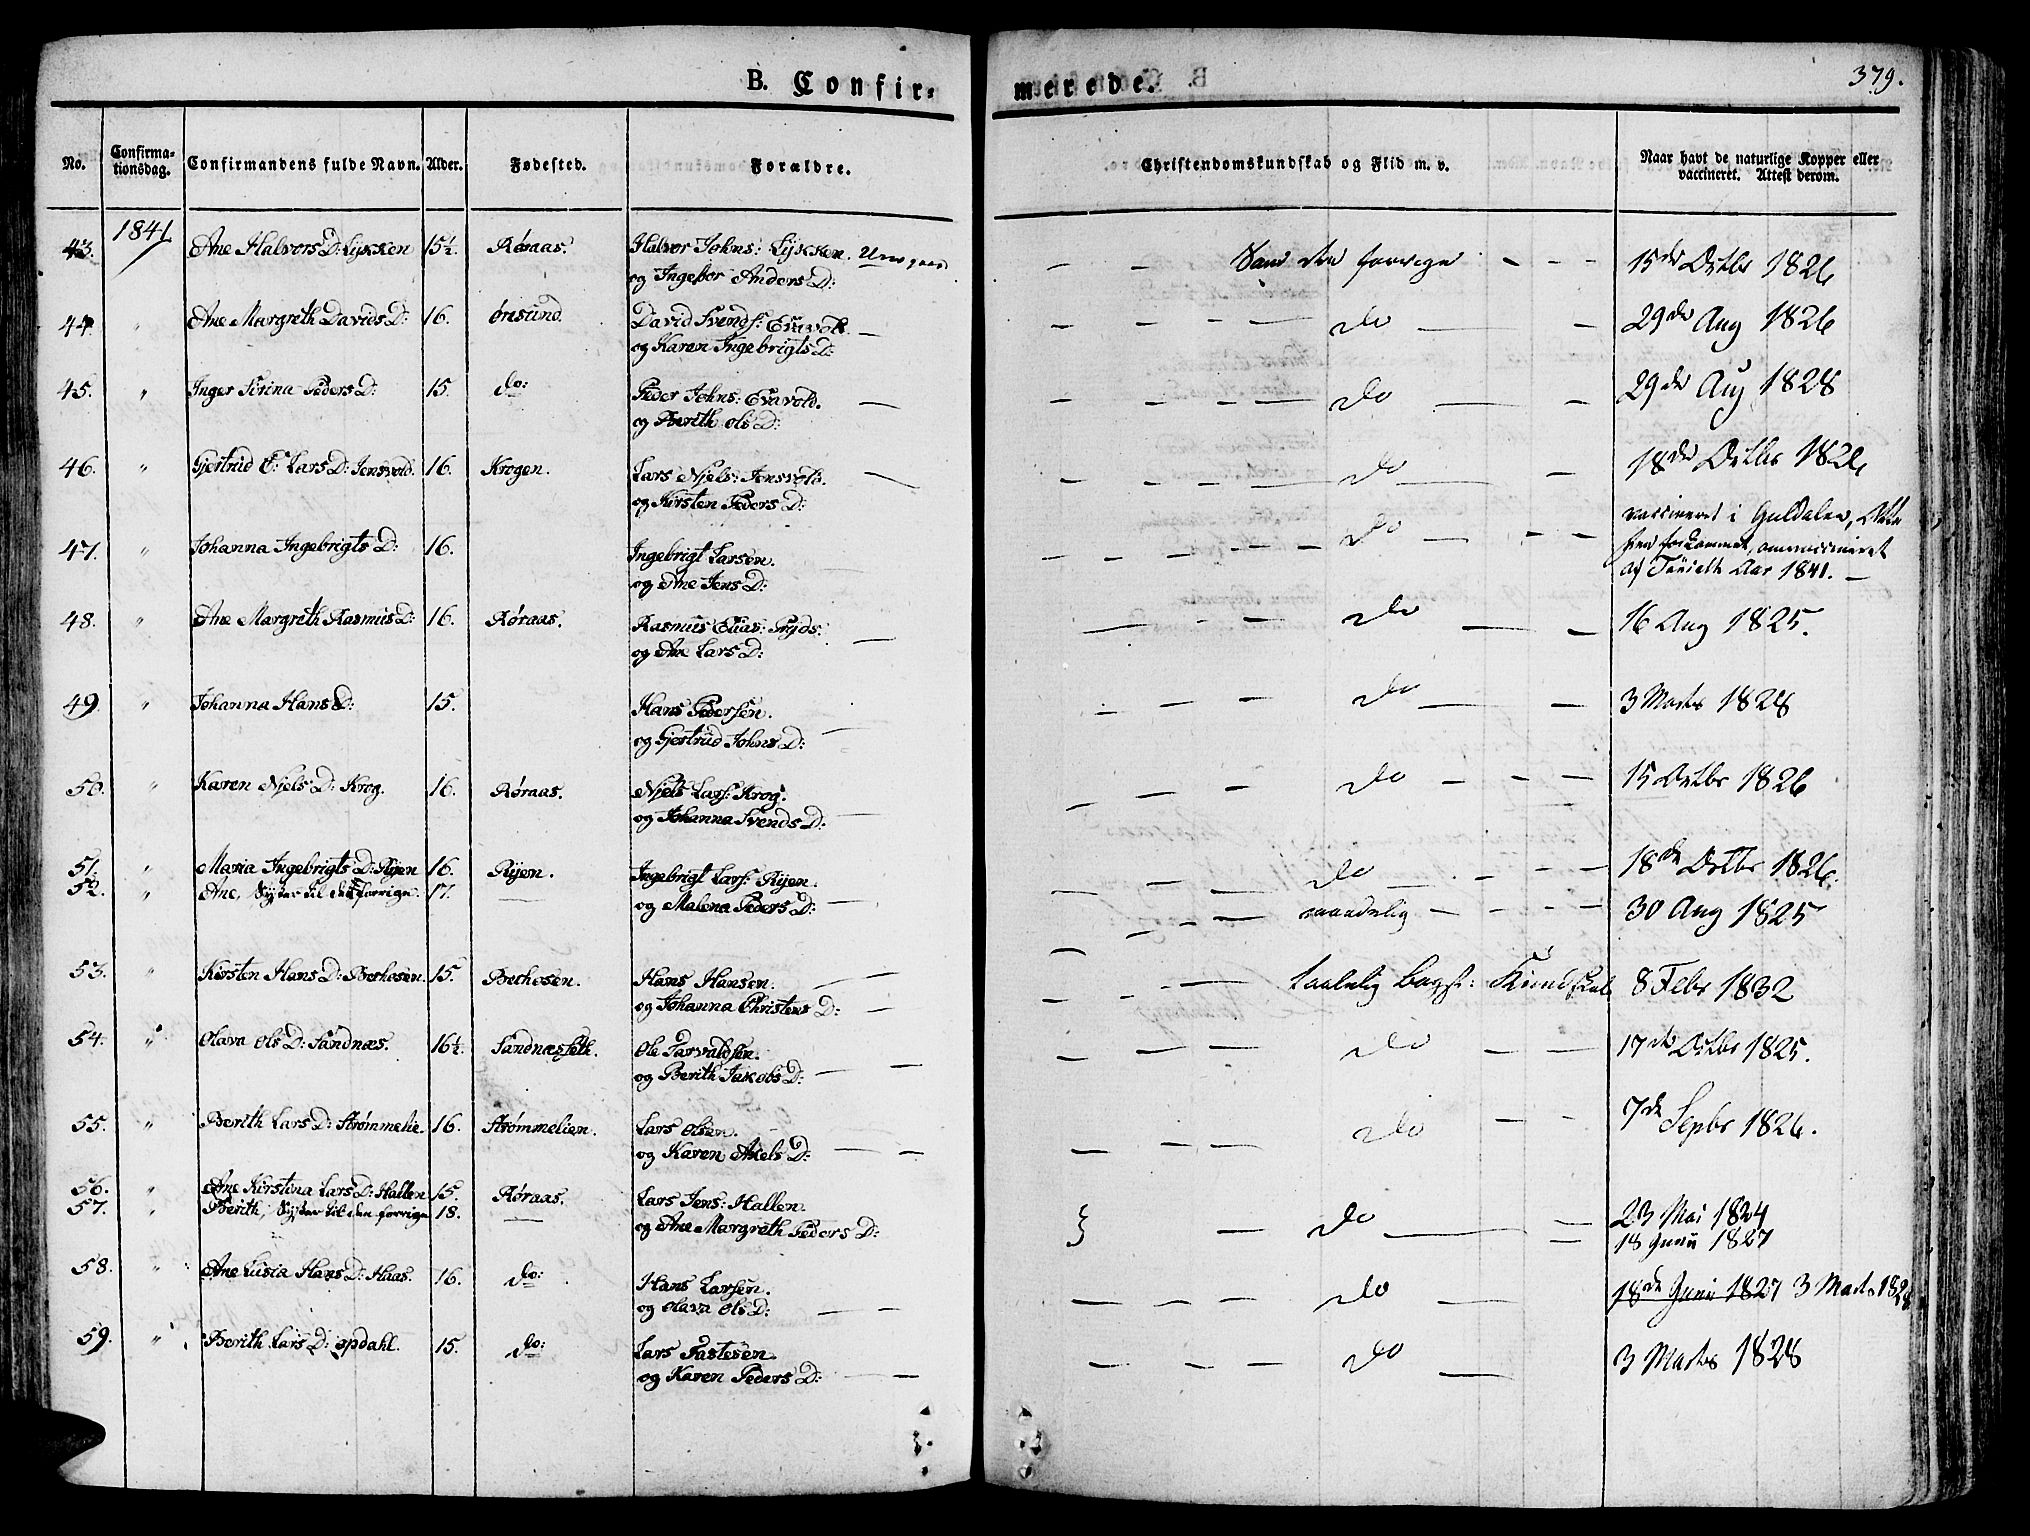 B. Confir-
merede.
379.
No. Confirma-tionsdag. Confirmandens fulde Navn. Alder. Fødested. Forældre. Christendomskundskab og Flid m. v. Naar havt de naturlige Kopper eller vaccineret. Attest derom.
1841
43. Ane Halvors D: Lykken 15½ Røraas. Halvor Johns: Lykken. — — Som den forrige - - - 15de Octbr 1826
og Ingebor Anders D:
44. " Ane Margreth Davids D: 16. Ørisund. David Svends: — — — — do — — 29de Aug 1826
og Karen Ingebrigts D:
45. " Inger Sirina Peders D: 15. do: Peder Johns: Evavold. — — — — — do — — 29de Aug 1828
og Berith Ols D:
46. " Gjertrud E: Lars D: Jensvold. 16. Krogen. Lars Niels: Jensvold. — — — — — do — — 18de Octbr 1826
og Kirsten Peders D:
47. " Johanna Ingebrigts D: 16. Ingebrigt Larsen. — — — — do — — — vaccineret i Guldalen,
og Ane Jens D: forkommet, omvaccineret
Aar 1841. —
48. " Ane Margreth Rasmus D: 16. Røraas. Rasmus Elias: Pryds. — — — — do — — 16 Aug 1825.
og Ane Lars D:
49. " Johanna Hans D: 15. Hans Pedersen. — — — — do — — 3 Marts 1828
og Gjertrud Johns D:
50. " Karen Niels D: Krog. 16. Røraas. Niels Lars: Krog. — — — — do — — — 15 Octbr 1826
og Johanna Svends D:
51. " Maria Ingebrigts D: Ryen 16. Ryen. Ingebrigt Lars: Ryen. — — — — do — — — 18de Octbr 1826.
52. " Ane, Syster til den forrige. 17. — og Malena Peders D: — — — — maadelig — — — 30 Aug 1825
53. " Kirsten Hans D: Bethosen. 15. Bethosen. Hans Hansen. — — — — taalelig Kundskab 8 Febr 1832
og Johanna Christens D: —
54. " Olava Ols D: Sandnæs. 16½. Sandnæsseth. Ole Tarvaldsen. — — — do — — 17de Octbr 1825.
og Berith Jakobs D: — —
55. " Berith Lars D: Strømmelie. 16. Strømmelien. Lars Olsen. — — — do — — 7de Sepbr 1826.
og Karen Axels D: — —
56. " Ane Kirstina Lars D: Hallen 15. Røraas. Lars Jens: Hallen } — do — — 23 Mai 1824
57. " Berith, Syster til den forrige 18. — og Ane Margreth Peders D: — 18 Junii 1827
58. " Ane Lusia Hans D: Haas. 16. do: Hans Larsen. — — — — do — — 18de Juni 1827 3 Marts 1828
og Olava Ols D: — —
59. " Berith Lars D: Opdahl. 15. do: Lars Tastesen — — — — do — 3 Marts 1828
og Karen Peders D: — —